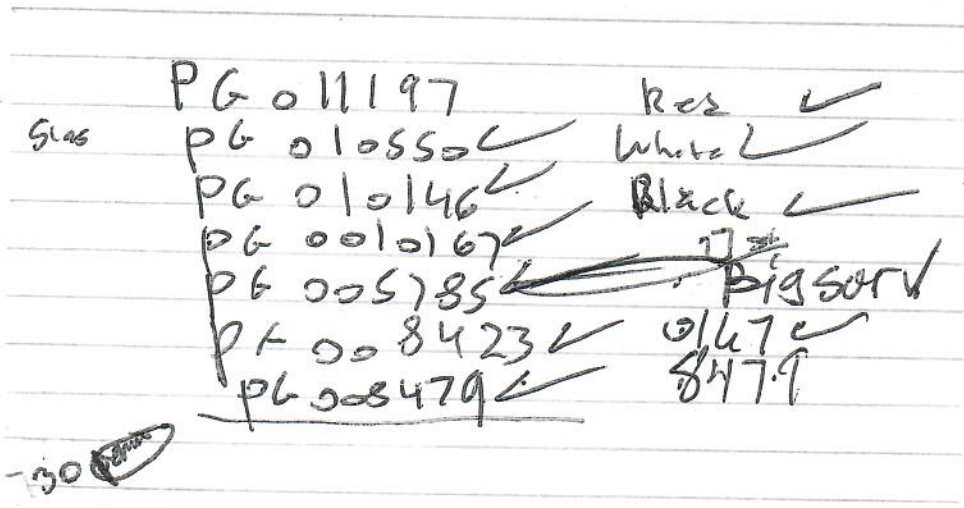 PG 011197 Red ✓
PG 010550 ✓ White ✓
PG 010146 ✓ Black ✓
PG 0010167 ✓
PG 005785 ✓ Bigserv
PG 008423 ✓ 0167 ✓
PG 008479 ✓ 8479
30